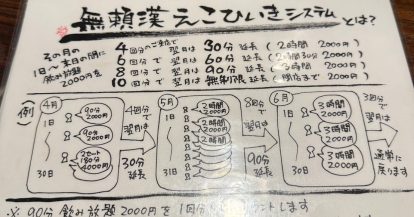 無頼漢えこひいきシステムとは?
その月の
1日〜末日の間に
飲み放題
2000円を
4回分のご来店で 翌月は 30分 延長 (2時間 2000円)
6回分で 翌月は 60分 延長 (2時間30分 2000円)
8回分で 翌月は 90分 延長 (3時間 2000円)
10回分で 翌月は 無制限 延長 (閉店まで 2000円)
(例)
4月
1日
30日
90分
2000円
90分
2000円
2セット
180分
4000円
4回分で
翌月は
30分
延長
5月
1日
30日
2時間
2000円
2時間
2000円
8回分で
翌月は
90分
延長
6月
1日
30日
3時間
2000円
3時間
2000円
3時間
2000円
3回分で
翌月は
通常に
戻ります
※ 90分 飲み放題 2000円を 1回分 カウントします